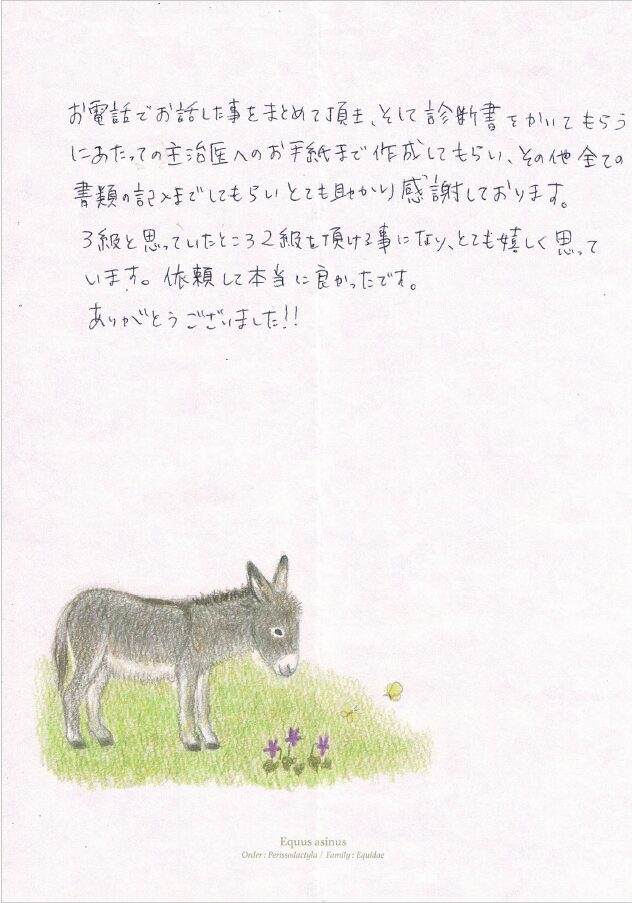 お電話でお話した事をまとめて頂き、そして診断書をかいてもらう
にあたっての主治医へのお手紙まで作成してもらい、その他全ての
書類の記入までしてもらいとても助かり感謝しております。
3級と思っていたところ2級を頂ける事になり、とても嬉しく思って
います。依頼して本当に良かったです。
ありがとうございました!!
Equus asinus
Order : Perissodactyla / Family : Equidae